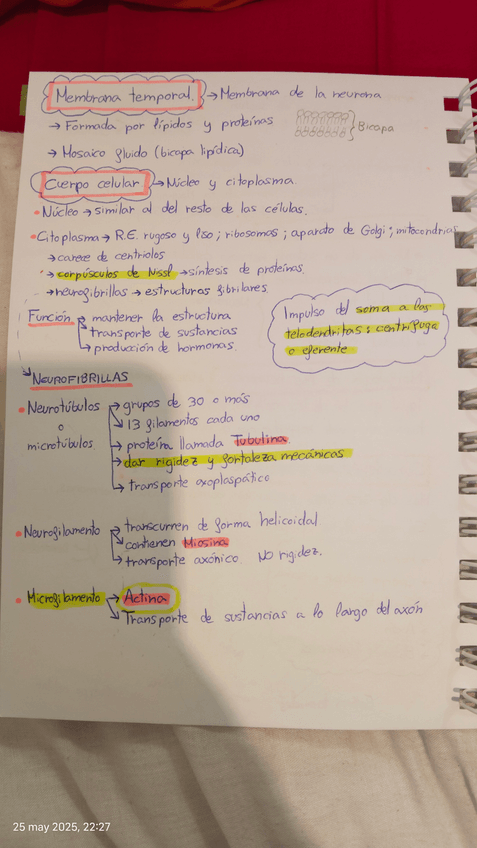 Membrana temporal. → Membrana de la neurona
→ Formada por lípidos y proteínas
Bicapa
→ Mosaico fluido (bicapa lipídica)
Cuerpo celular → Núcleo y citoplasma.
• Núcleo → similar al del resto de las células.
• Citoplasma → R.E. rugoso y liso; ribosomas; aparato de Golgi; mitocondrias
→ carece de centriolos
→ corpúsculos de Nissl → síntesis de proteínas.
→ neurofibrillas → estructuras fibrilares.
Función → mantener la estructura
→ transporte de sustancias
→ producción de hormonas.
Impulso del soma a las
teledendritas; centrífuga
o eferente
NEUROFIBRILLAS
• Neurotúbulos → grupos de 30 o más
o → 13 filamentos cada uno
microtúbulos → proteína llamada Tubulina.
→ dar rigidez y fortaleza mecánicas
→ transporte axoplaspático
• Neurofilamento → transcurren de forma helicoidal.
→ contienen Miosina
→ transporte axónico. NO rigidez.
• Microfilamento → Actina
→ Transporte de sustancias a lo largo del axón
25 may 2025, 22:27